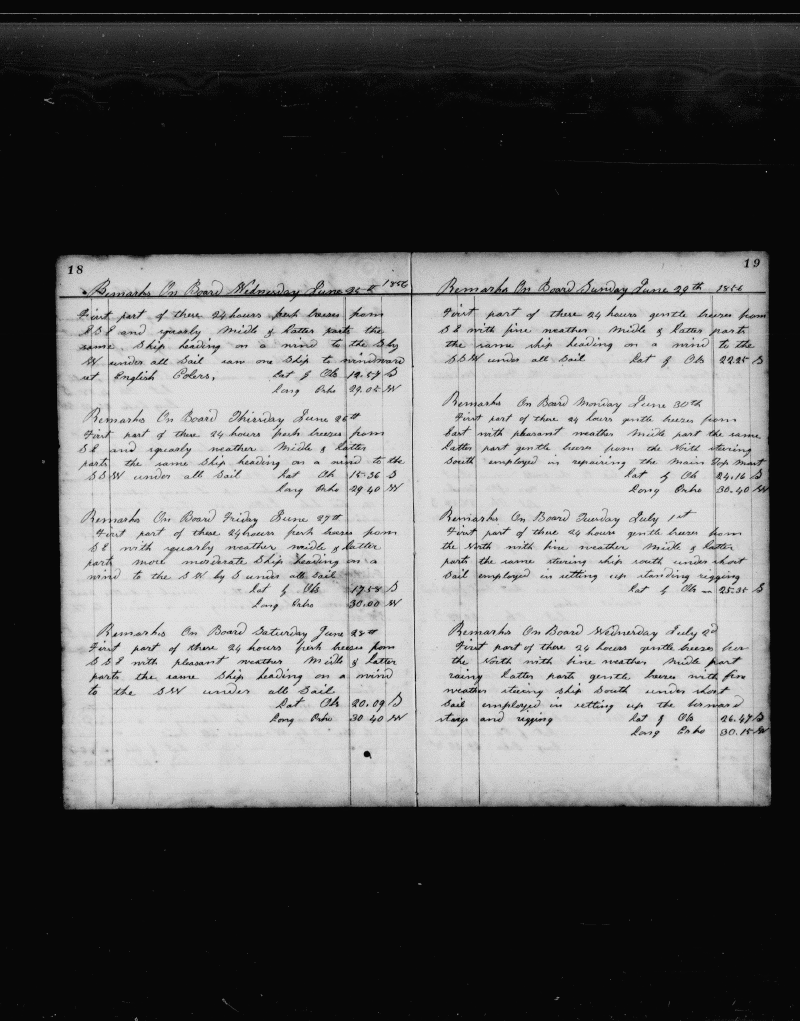 18
Remarks On Board Wednesday June 25th 1856
First part of these 24 hours fresh breezes from
S S E and squarly Midle & latter parts the
same Ship heading on a wind to the S by
W under all Sail saw one Ship to windward
set English Colers, Lat by Ob 12.57 S
Long Crho 29.05 W
Remarks On Board Thirsday June 26th
First part of these 24 hours fresh breezes from
S E and squarly weather Midle & latter
parts the same Ship heading on a wind to the
S S W under all Sail Lat Ob 15.36 S
Long Crho 29.40 W
Remarks On Board Friday June 27th
First part of these 24 hours fresh breezes from
S E with squarly weather midle & latter
parts more moderate Ship heading on a
wind to the S W by S under all Sail
Lat by Ob 17.58 S
Long Crho 30.00 W
Remarks On Board Saturday June 28th
First part of these 24 hours fresh breezes from
S S E with pleasant weather Midle & latter
parts the same Ship heading on a wind
to the S W under all Sail
Lat Ob 20.09 S
Long Crho 30.40 W
19
Remarks On Board Sunday June 29th 1856
First part of these 24 hours gentle breezes from
S E with fine weather Midle & latter parts
the same ship heading on a wind to the
S S W under all Sail Lat by Ob 22.25 S
Remarks On Board Monday June 30th
First part of these 24 hours gentle breezes from
East with pleasant weather Midle part the same
latter part gentle breezes from the North stering
South employed in repairing the Main Top Mast
Lat by Ob 24.16 S
Long Crho 30.40 W
Remarks On Board Tuesday July 1st
First part of these 24 hours gentle breezes from
the North with fine weather Midle & latter
parts the same stering ship south under short
Sail employed in setting up standing rigging
Lat by Ob 25.35 S
Remarks On Board Wednesday July 2d
First part of these 24 hours gentle breezes
the North with fine weather Midle part
rainy latter parts gentle breezes with fine
weather stering ship South under short
Sail employed in setting up the forward
stays and rigging Lat by Ob 26.47 S
Long Crho 30.15 W